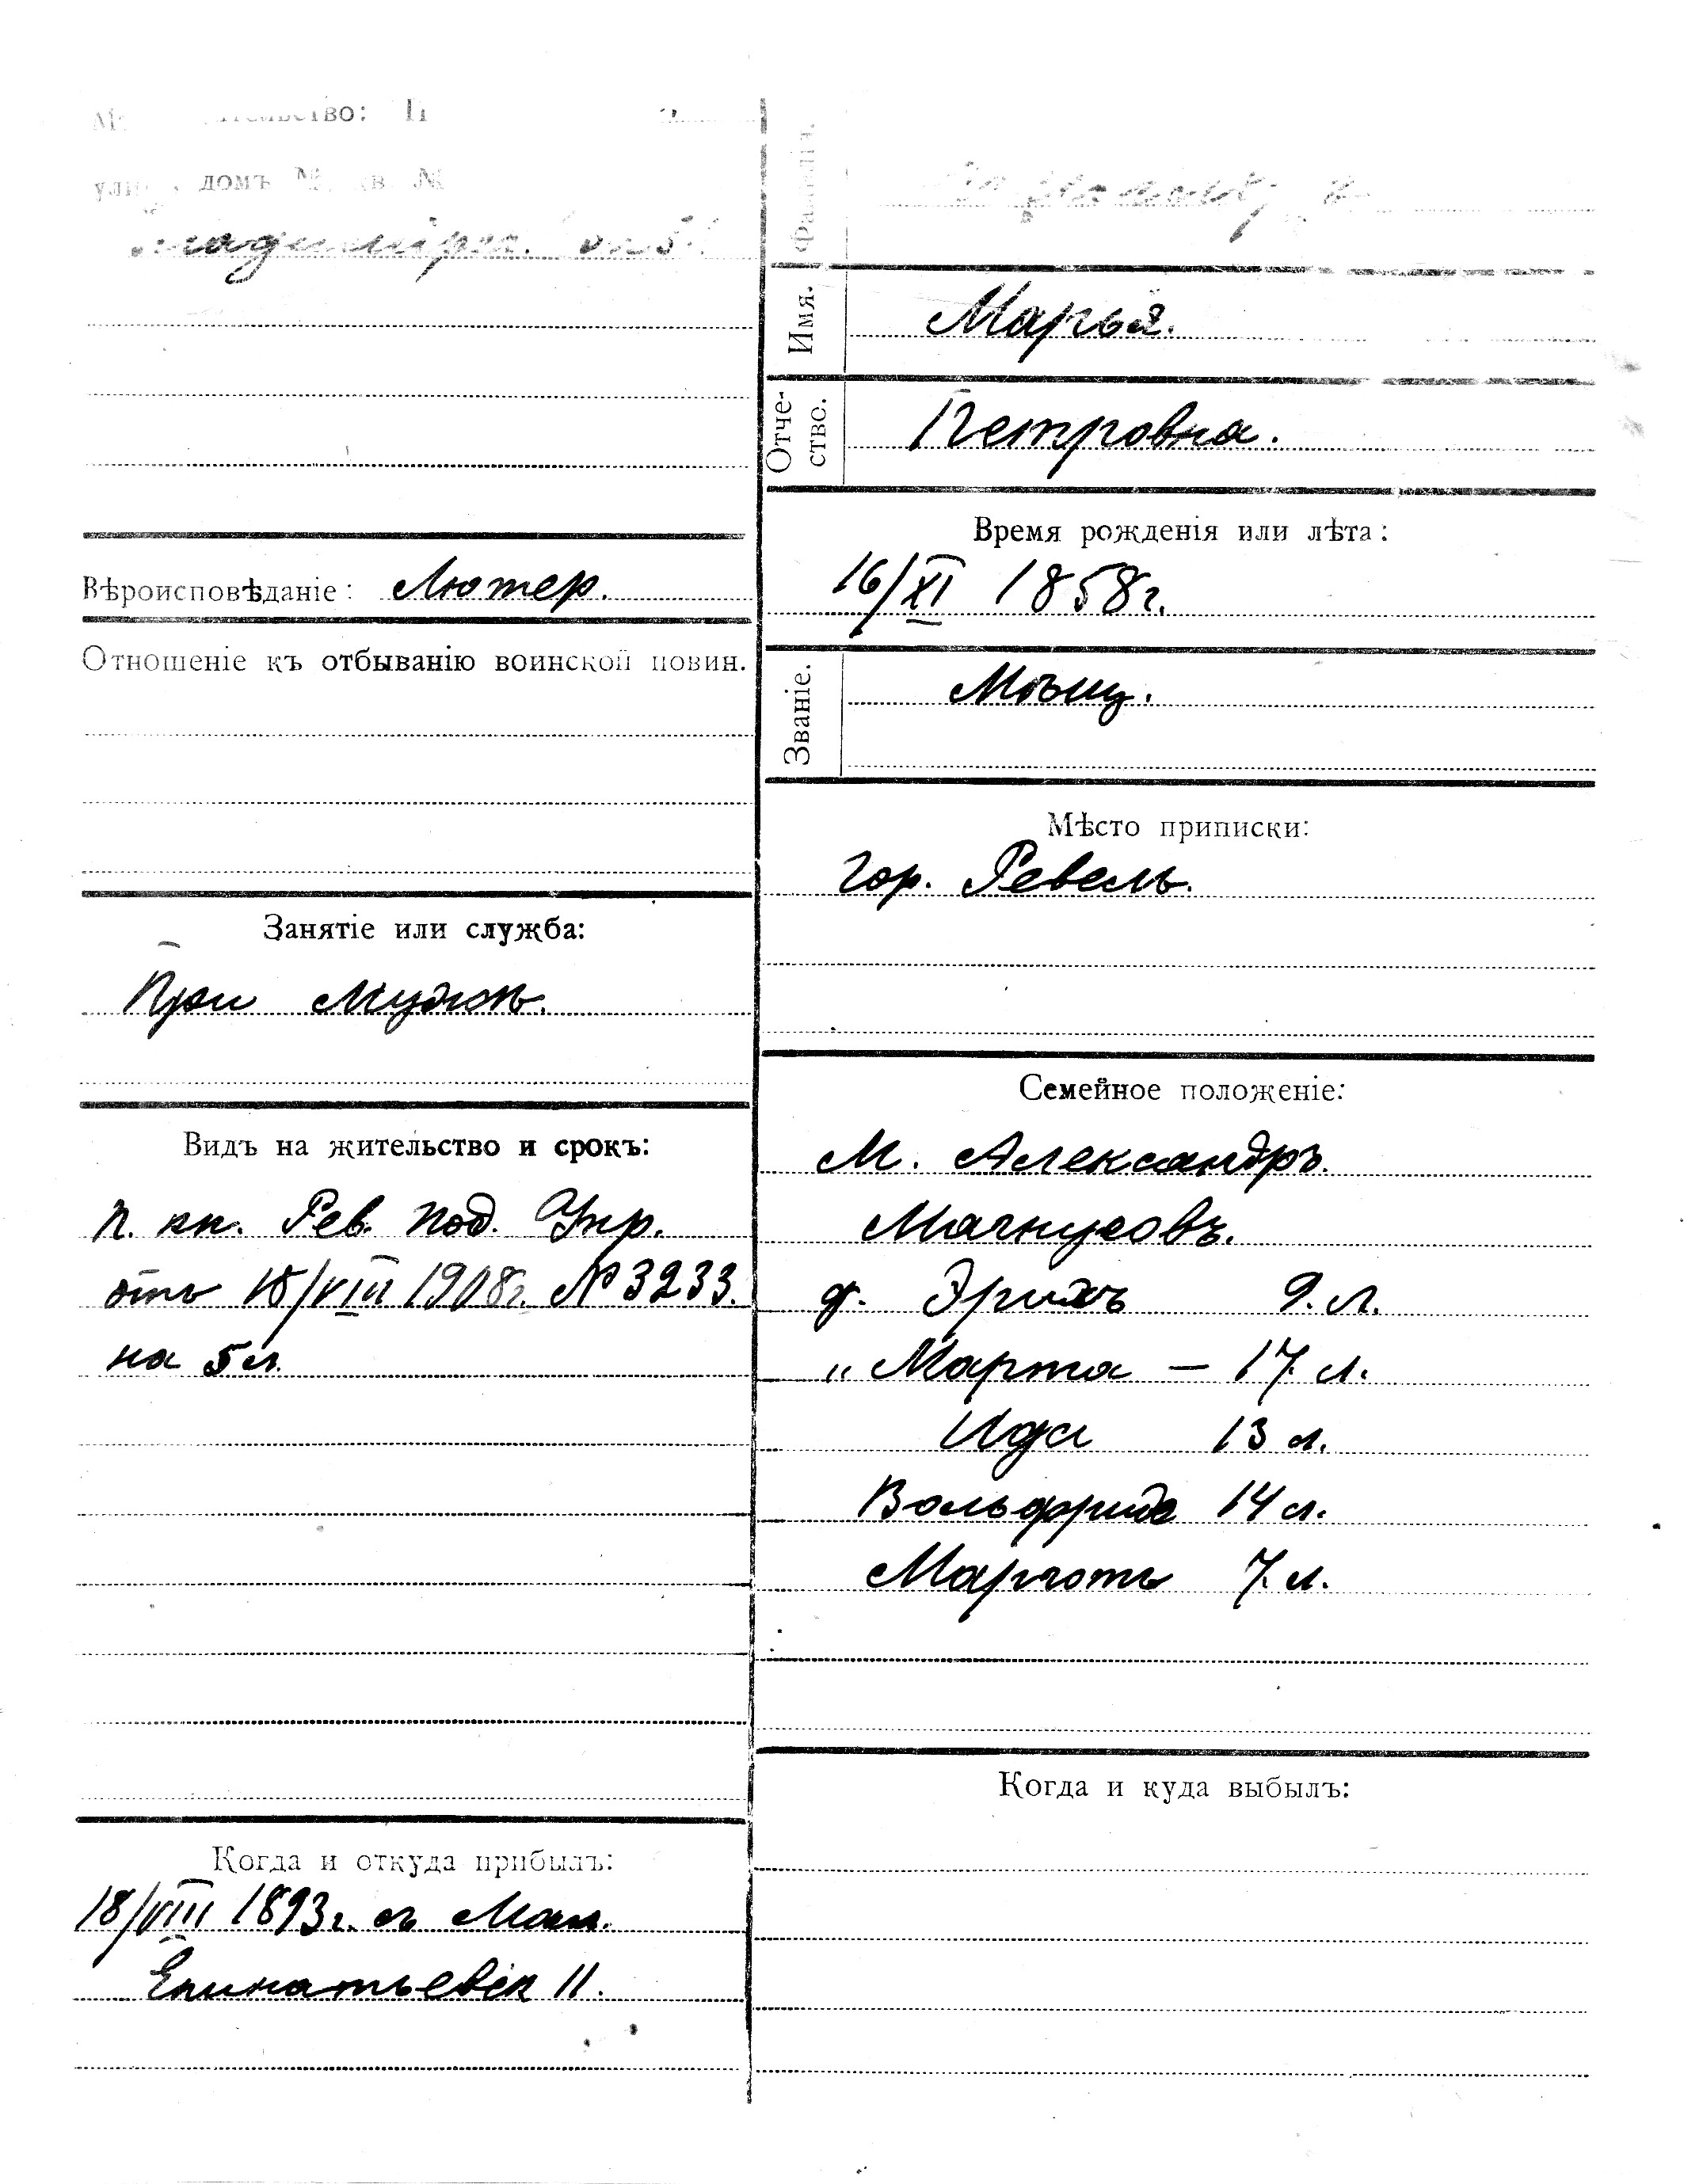 домъ № кв. №
Вѣроисповѣданіе: Лютер.
Отношеніе къ отбыванію воинской повин.
Занятіе или служба:
При мужѣ.
Видъ на жительство и срокъ:
п. кн. Рев. Под. Упр.
отъ 18/VIII 1908г. № 3233.
на 5 л.
Когда и откуда прибылъ:
18/VIII 1893г. съ Мал.
11.
Фамилія.
Имя.
Марья.
Отче-
ство.
Петровна.
Время рожденія или лѣта:
16/XI 1858г.
Званіе.
Мѣщ.
Мѣсто приписки:
гор. Ревель.
Семейное положеніе:
М. Александръ
Магнусовъ.
д. Эрихъ 9. л.
„ Марта — 17. л.
Ида 13 л.
Вольфридъ 14 л.
Марготъ 7. л.
Когда и куда выбылъ: